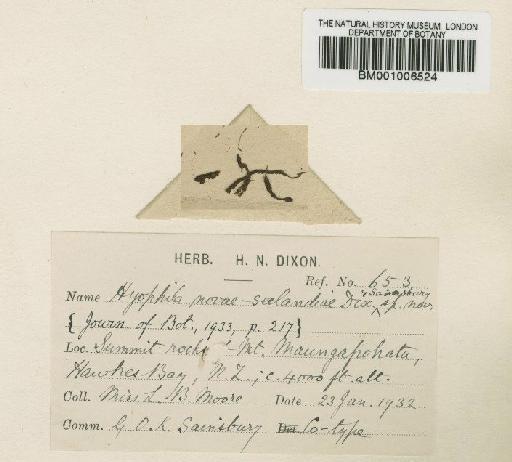 THE NATURAL HISTORY MUSEUM, LONDON
DEPARTMENT OF BOTANY
BM001006524
HERB. H. N. DIXON.
Ref. No. 653
& Sainsbury
Name Hyophila novae-seelandiae Dix. sp. nov.
{ Journ. of Bot., 1933, p. 217 }
Loc. Summit rocks Mt. Maungapohatu,
Hawkes Bay, N.Z.; c. 4000 ft. alt.
Coll. Miss L. B. Moore Date 23 Jan. 1932
Comm. G. O. K. Sainsbury Co-type